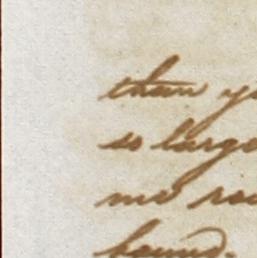 than y
so large
me roo
bound.